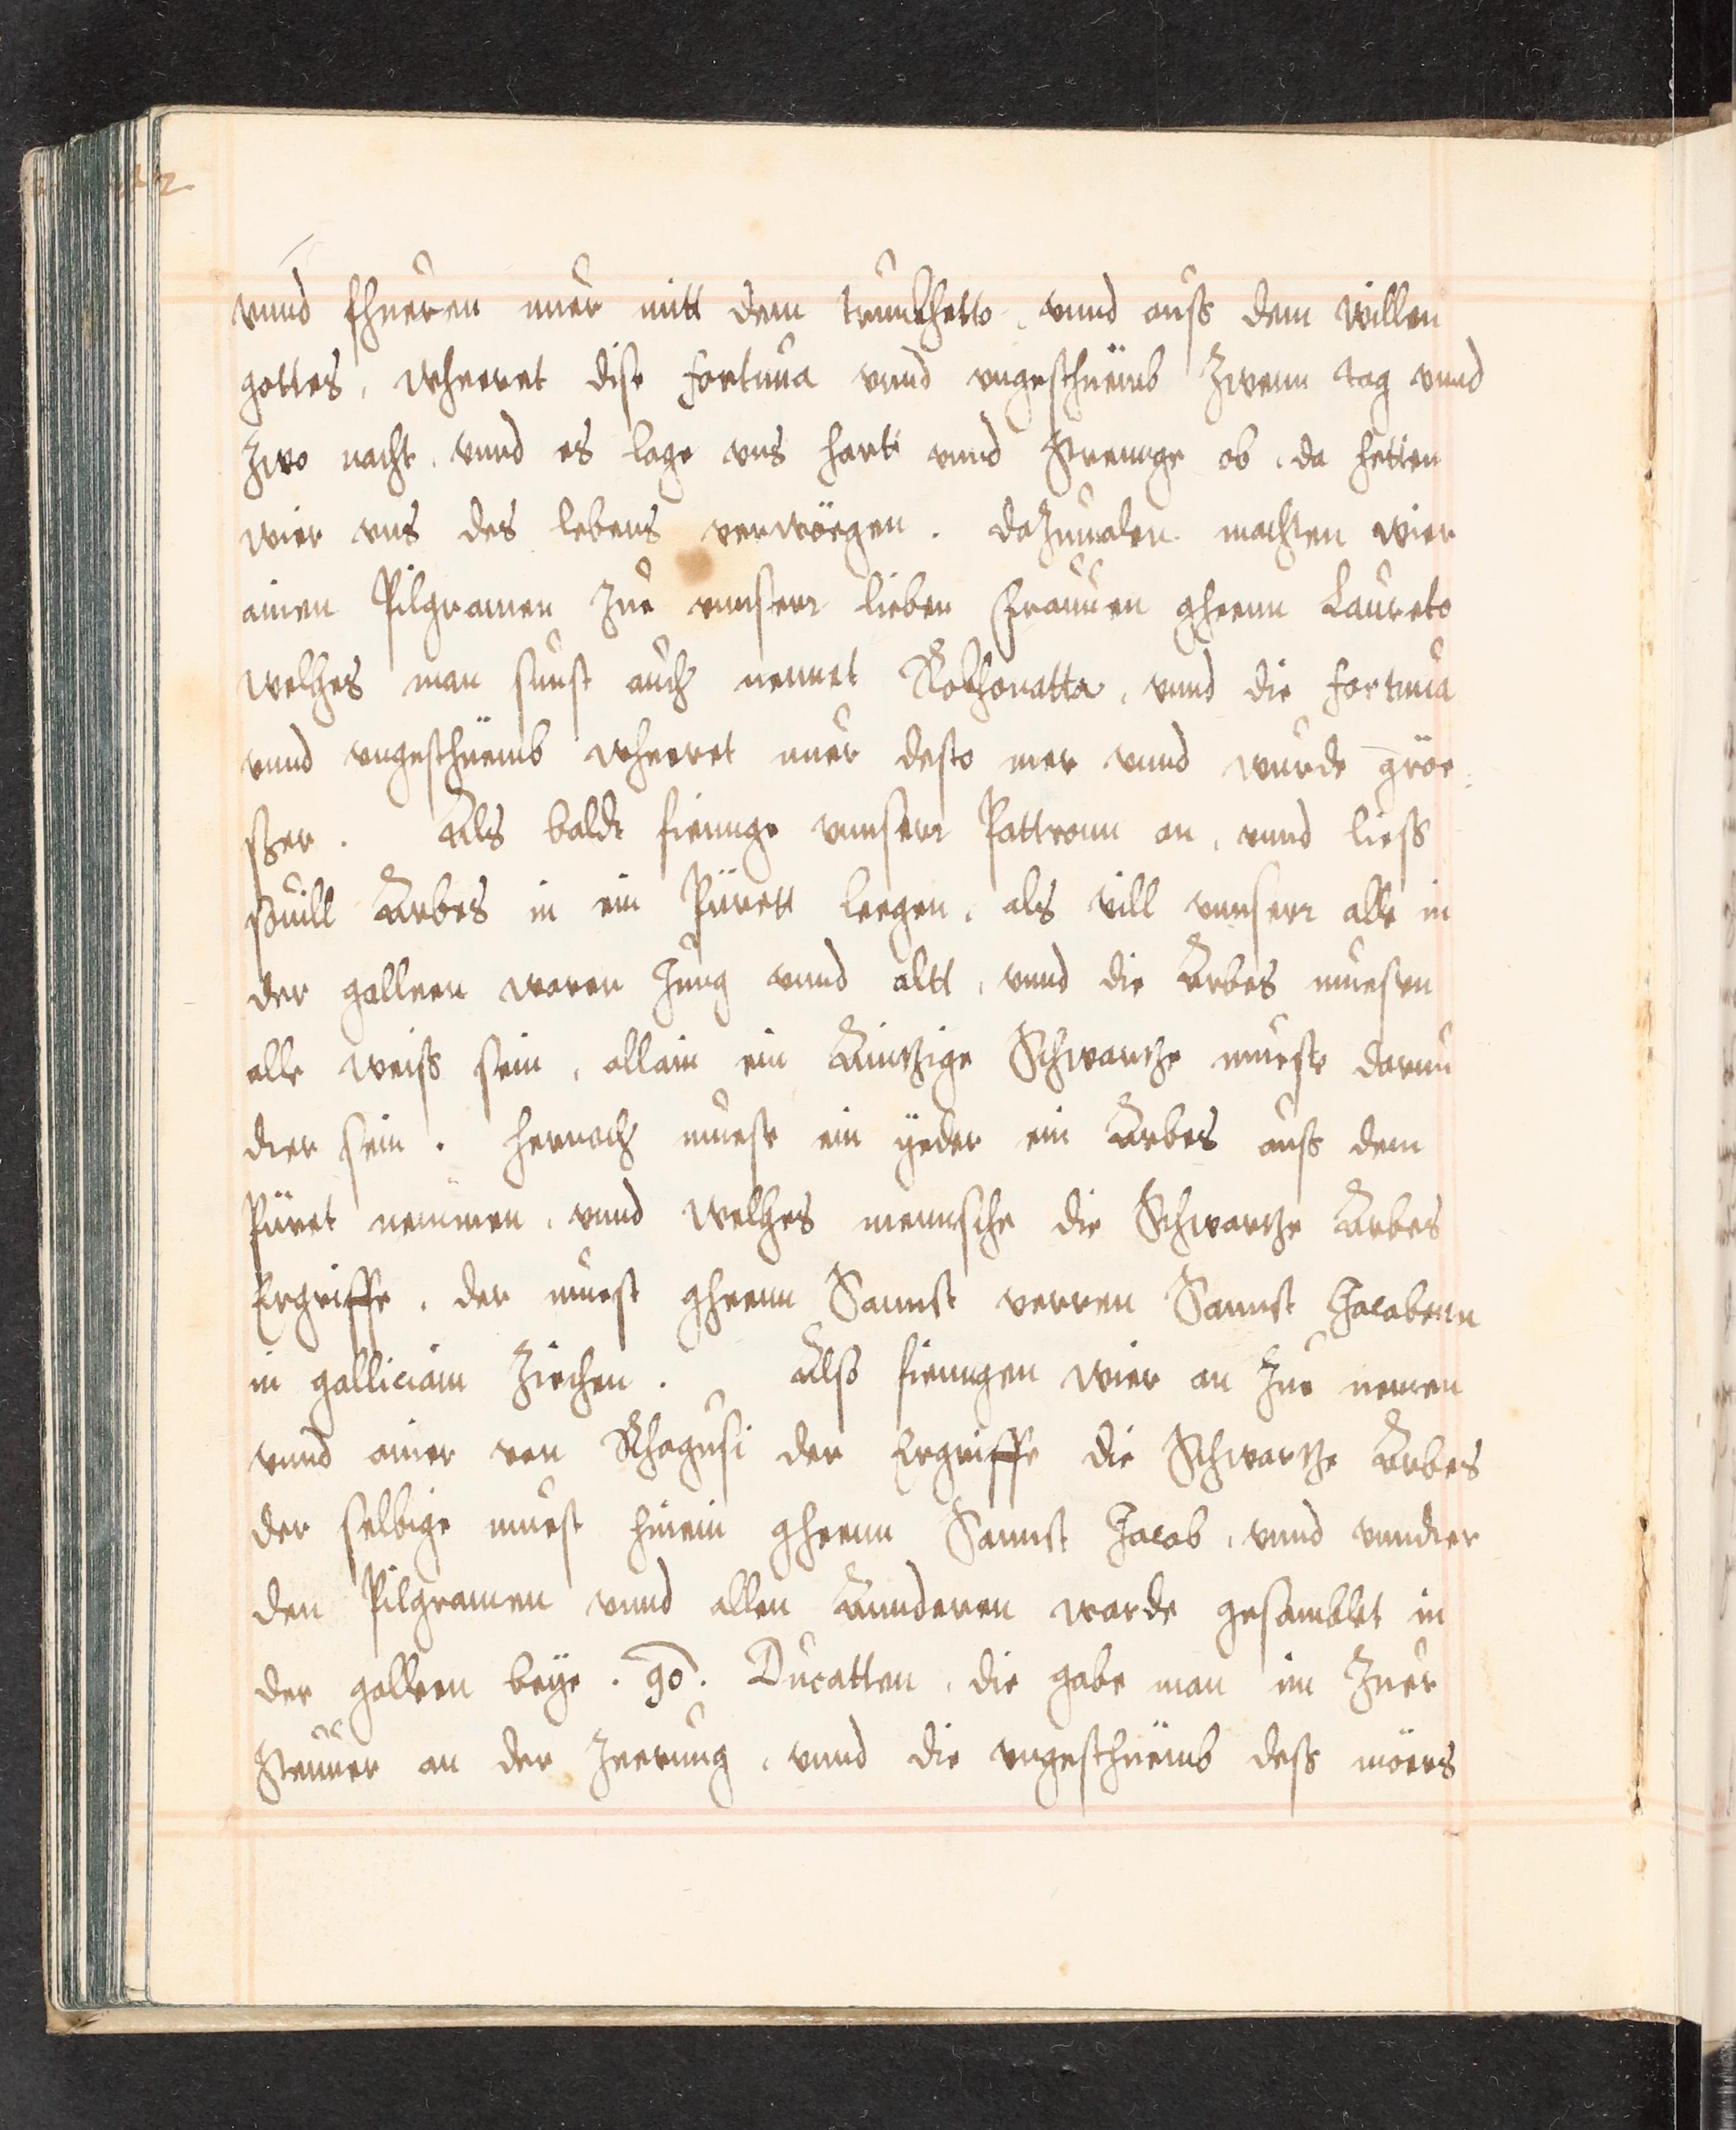 vnnd fhueren nuer mitt dem trunkhetto, vnnd auß dem willen
gottes, wheeret dise fortuna vnnd vngesthüemb Zwenn tag vnnd
Zwo nacht, vnnd es lage vns hartt vnnd strennge ob, da hetten
wier vns des lebens verwögen. dazumalen machten wier
ainen Pilgramen Zue vnnserr lieben Frauuen gheenn Laureto
welhes man sunst auch nennet Rokhonatta, vnnd die fortuna
vnnd vngesthüemb wheeret nuer desto mer vnnd wurde gröe
sser. Als baldt fienge vnnserr Pattronn an, vnnd ließ
souill Arbes in ein Püret leegen, als vill vnnserr alle in
der galleen waren Jung vnnd altt, vnnd die Arbes muesten
alle weiß sein, allain ein Aintzige Schwartze mueste darun
dter sein. hernach mueste ein yeder ein Arbes auß dem
Püret nemmen, vnnd welhes mennsche die Schwartze Arbes
Ergriffe, der muest gheenn Sannt verren Sannt Jacobenn
in galliciam Ziechen. Also fienngen wier an Zue nemen
vnnd ainer von Rhagusi der Ergriffe die Schwartze Arbes
der selbige muest hinein gheenn Sannt Jacob, vnnd vnndter
den Pilgramen vnnd allen Annderen warde gesamblet in
der galleen beye .90. Ducatten, die gabe man im Zuer
Steuuer an der Zeerung, vnnd die vngesthüemb deß mörs